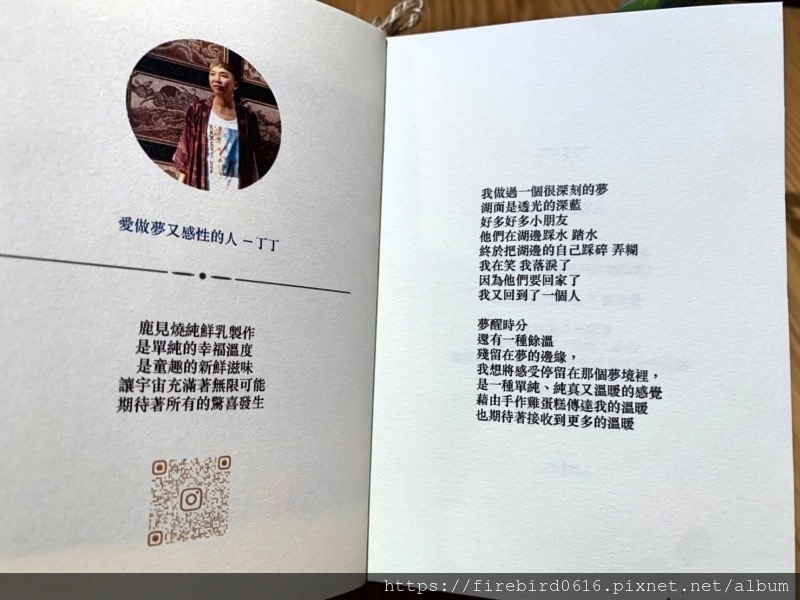 愛做夢又感性的人－丁丁
鹿見燒純鮮乳製作
是單純的幸福溫度
是童趣的新鮮滋味
讓宇宙充滿著無限可能
期待著所有的驚喜發生
我做過一個很深刻的夢
湖面是透光的深藍
好多好多小朋友
他們在湖邊踩水 踏水
終於把湖邊的自己踩碎 弄糊
我在笑 我落淚了
因為他們要回家了
我又回到了一個人
夢醒時分
還有一種餘溫
殘留在夢的邊緣，
我想將感受停留在那個夢境裡，
是一種單純、純真又溫暖的感覺
藉由手作雞蛋糕傳達我的溫暖
也期待著接收到更多的溫暖
https://firebird0616.pixnet.net/album